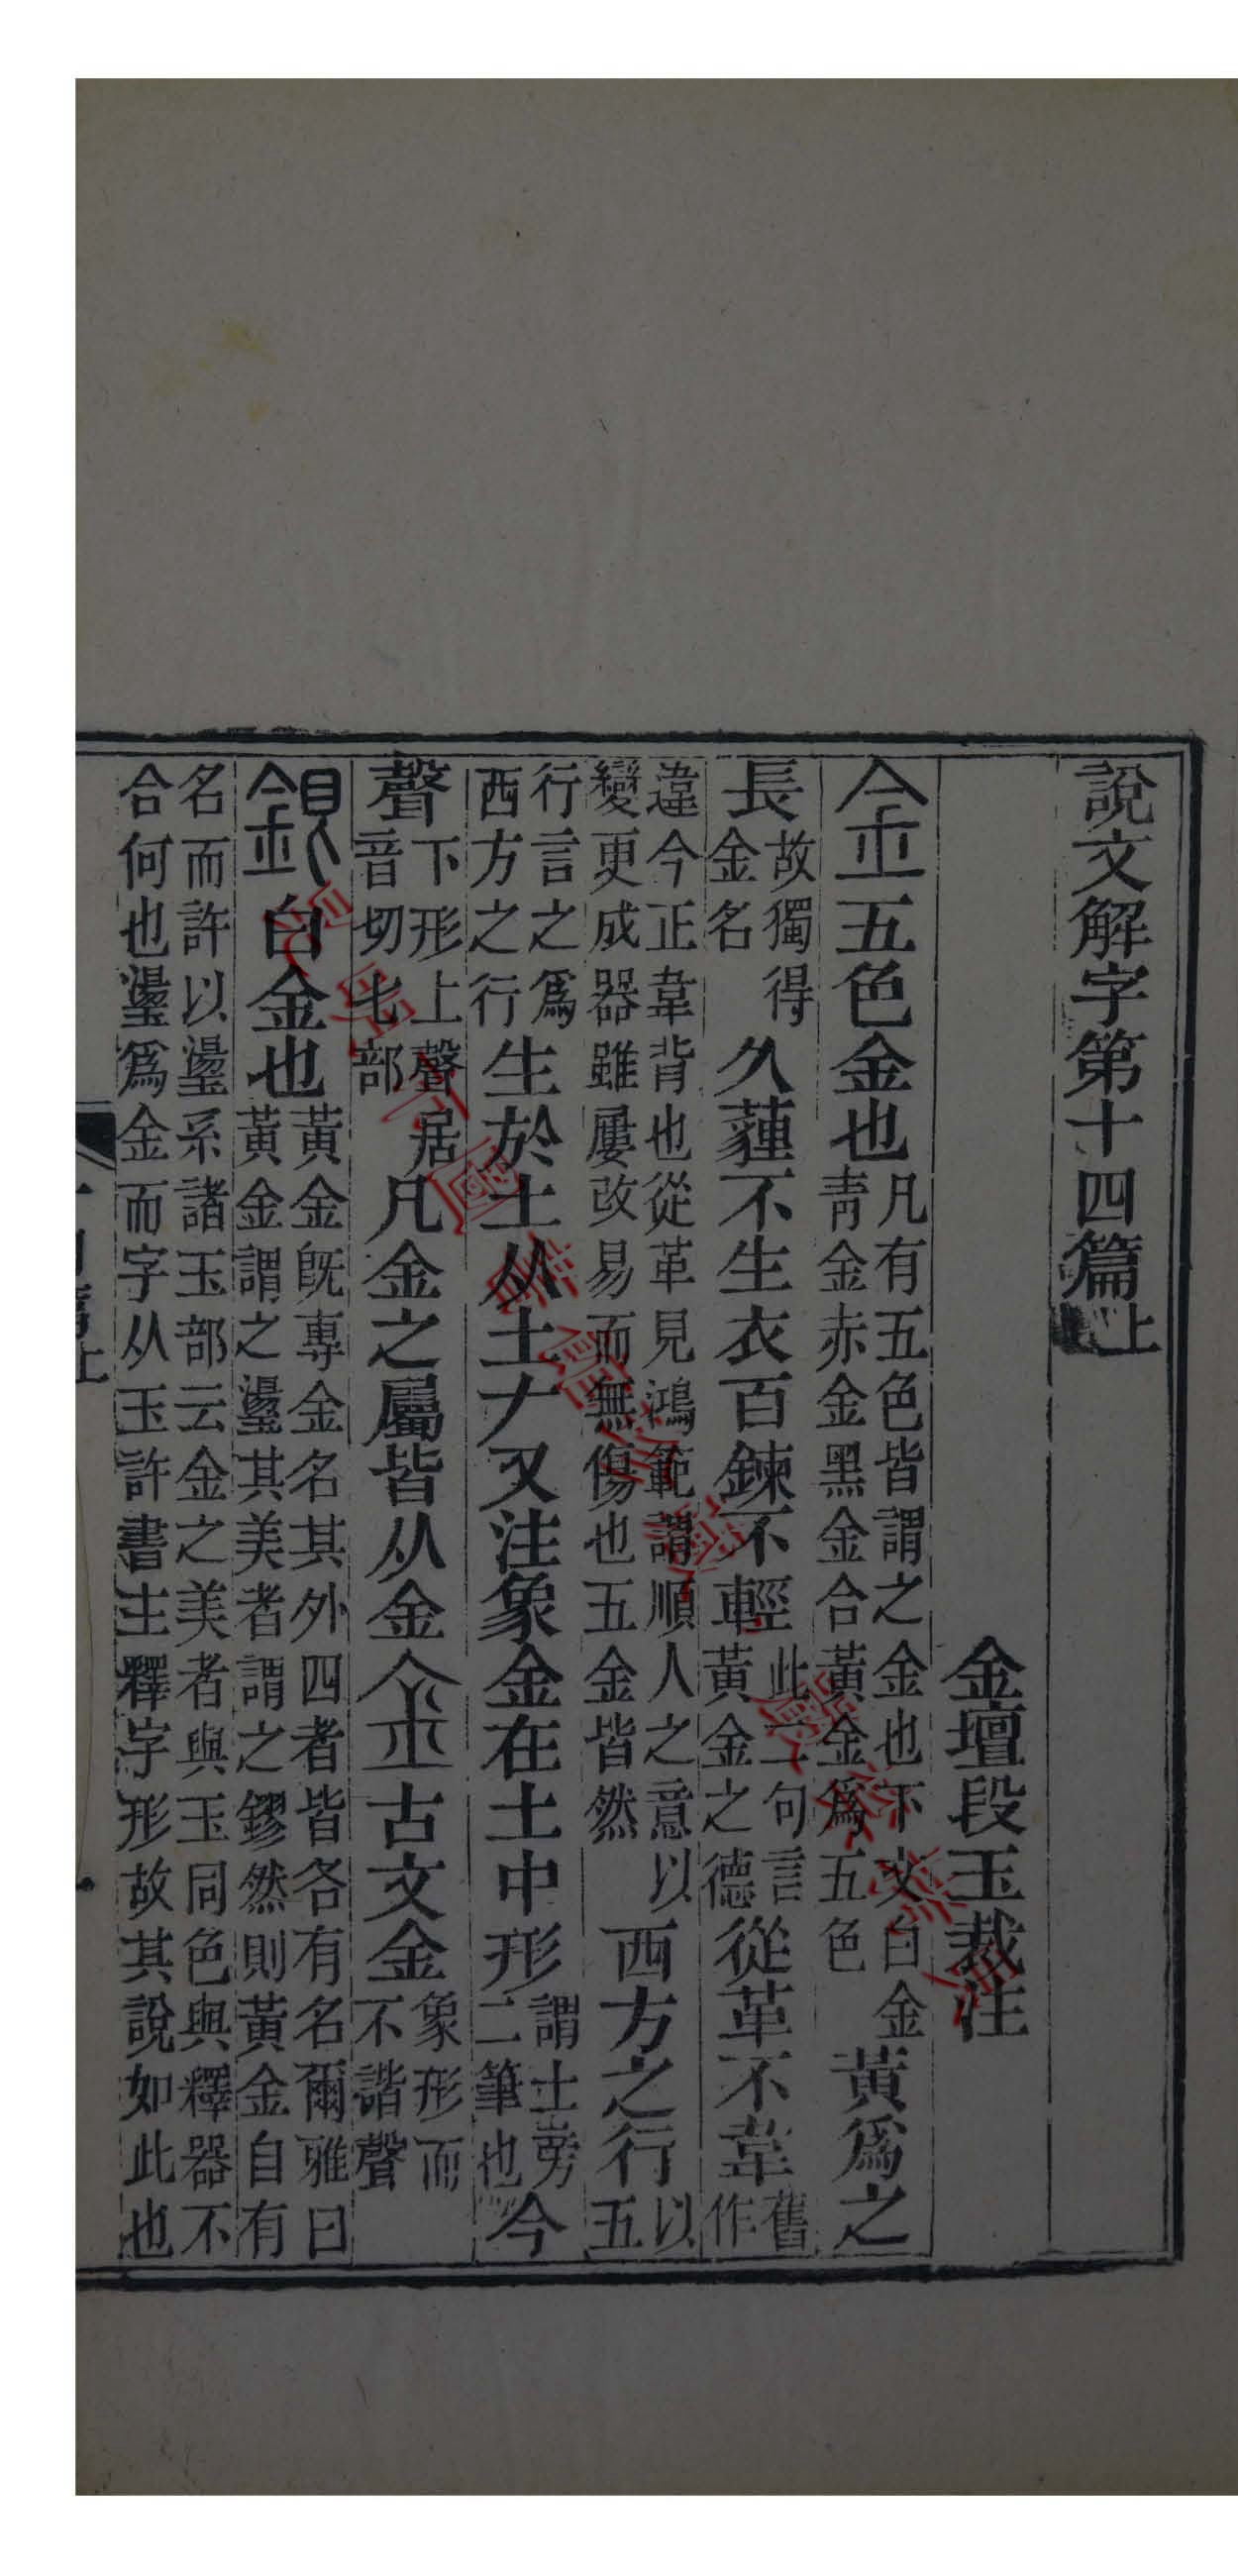 說文解字第十四篇上
金壇段玉裁注
金五色金也凡有五色皆謂之金也下文白金青金赤金黑金合黃金爲五色黃爲之
長故獨得金名久薶不生衣百鍊不輕此二句言黃金之德從革不韋舊作
違今正韋背也從革見鴻範謂順人之意以變更成器雖屢改易而無傷也五金皆然西方之行以五
行言之爲西方之行生於土从土𠂇又注象金在土中形謂土旁二筆也今
聲下形上聲居音切七部凡金之屬皆从金金古文金象形而不諧聲
銀白金也黃金旣專金名其外四者皆各有名爾雅曰黃金謂之璗其美者謂之鏐然則黃金自有
名而許以璗系諸玉部云金之美者與玉同色與釋器不合何也璗爲金而字从玉許書主釋字形故其說如此也